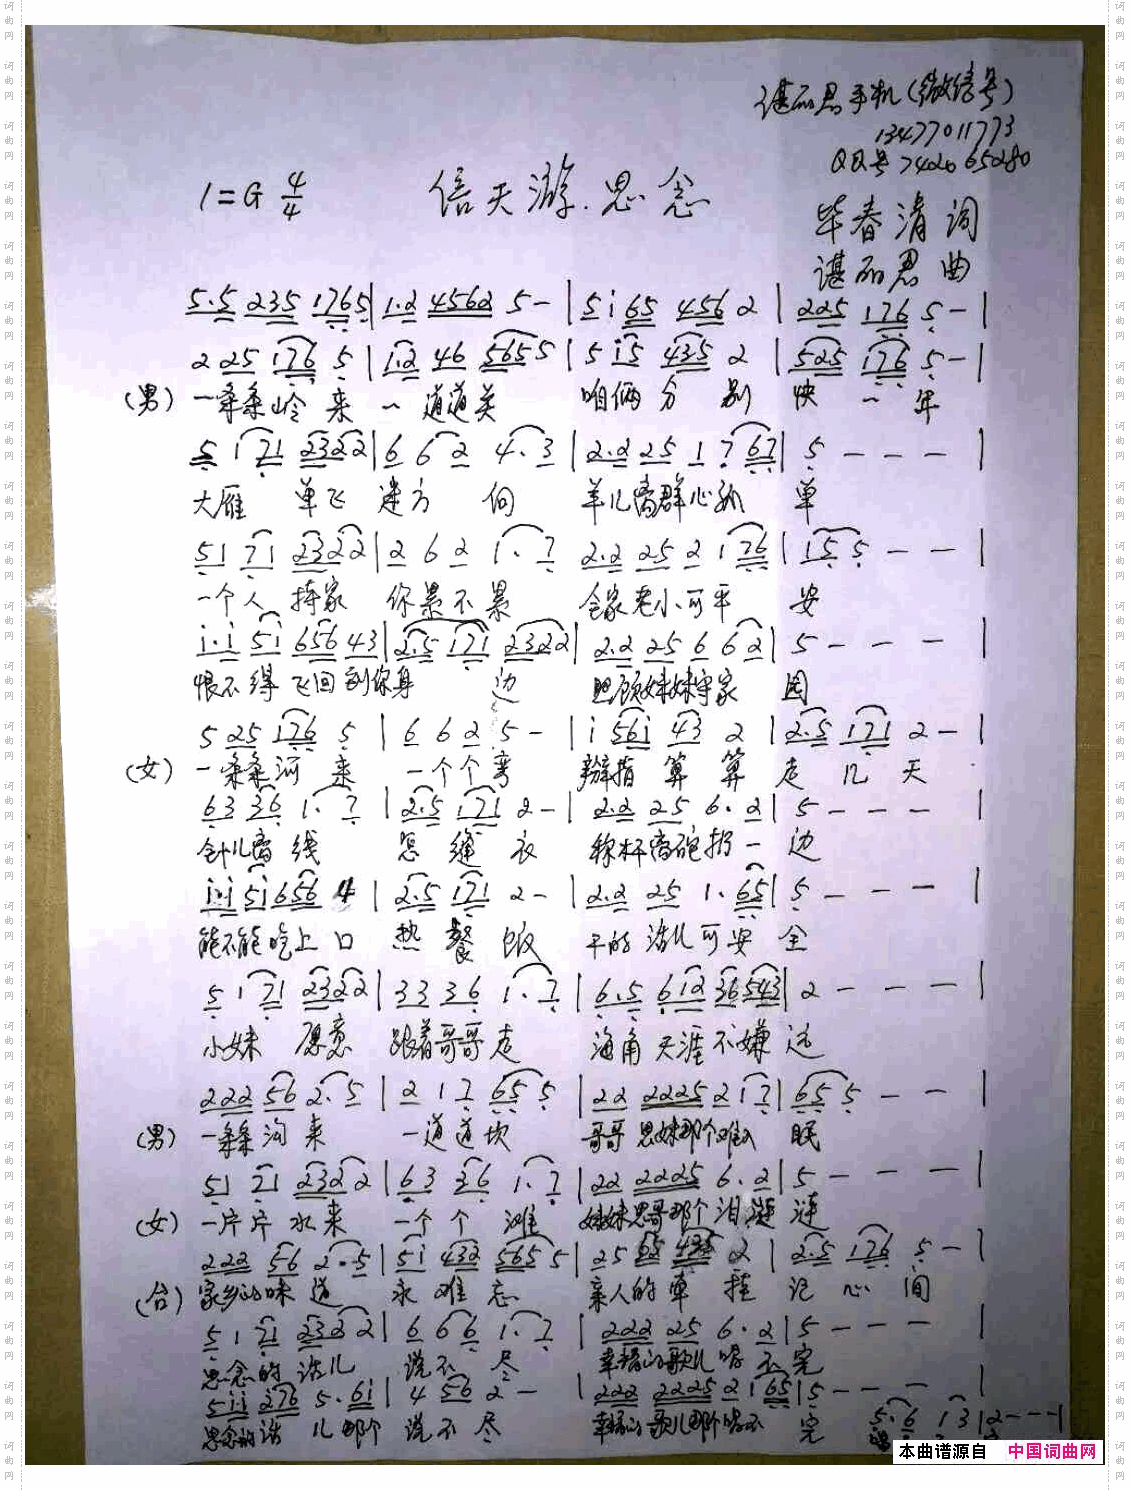 谌丽君手机(微信号)
13477011773
QQ号 742065280
1=G 4/4 信天游.思念
毕春清 词
谌丽君 曲
5.5 235 1765 | 1.2 4562 5 - | 5 i 65 456 2 | 225 176 5 - |
2 25 176 5 | 1.2 46 5655 | 5 i5 435 2 | 525 176 5 - |
(男) 一条条岭来 一道道关 咱俩分别 快一年
5 1 71 2322 | 6 6 2 4. 3 | 2.2 25 1 7 67 | 5 - - - |
大雁 单飞 迷方向 羊儿离群心孤单
51 71 2322 | 2 6 2 1. 7 2.2 25 2 1 76 | 155 - - |
一个人 持家 你累不累 全家老小可平安
i.i 5i 656 43 | 2.5 171 2322 | 2.2 25 6 6 2 | 5 - - - |
恨不得 飞回到你身边 照顾妹妹守家园
5 25 176 5 | 6 6 2 5 - | i 56i 43 2 | 2.5 171 2 - |
(女) 一条条河来 一个个弯 掰指算算 走几天
63 36 1. 7 | 2.5 171 2 - | 2.2 25 6. 2 | 5 - - - |
针儿离线 怎缝衣 称杆离砣扔一边
i.i 5i 656 4 | 2.5 171 2 - | 2.2 25 1. 65 | 5 - - - |
能不能吃上口 热餐饭 干的活儿可安全
5 1 71 2322 | 33 36 1. 7 | 6.5 612 36543 | 2 - - - |
小妹 愿意 跟着哥哥走 海角天涯不嫌远
222 56 2. 5 | 2 1 7 65 5 | 22 2225 2 1 7 | 65 5 - - |
(男) 一条条沟来 一道道坎 哥哥思妹那个难入眠
51 71 2322 | 63 36 1. 7 | 22 2225 6. 2 | 5 - - - |
(女) 一片片水来 一个个滩 妹妹思哥那个泪涟涟
222 56 2. 5 | 5i 432 565 5 | 25 435 2 | 2.5 176 5 - |
(合) 家乡的味道 永难忘 亲人的牵挂 记心间
5 1 71 2322 | 6 6 6 1. 7 | 222 25 6. 2 | 5 - - - |
思念的话儿 说不尽 幸福的歌儿唱不完
5ii 276 5. 6i | 4 56 2 - | 222 2225 2 1 65 | 5 - - - |
思念的话儿那个 说不尽 幸福的歌儿那个唱不完
5. 6 1 3 | 2 - - - |
本曲谱源自 中国词曲网